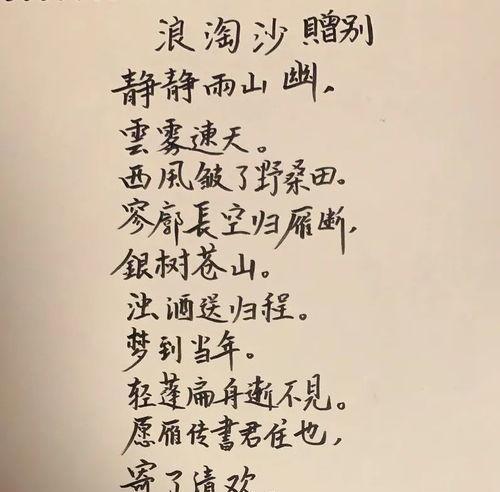 浪淘沙贈别
静静雨山幽，
雲雾連天。
西風皱了野桑田。
寥郭長空归雁断，
銀树苍山。
浊酒送归程。
梦到当年。
轻蓬扁舟逝不見。
愿雁传書君住也，
寄了清欢